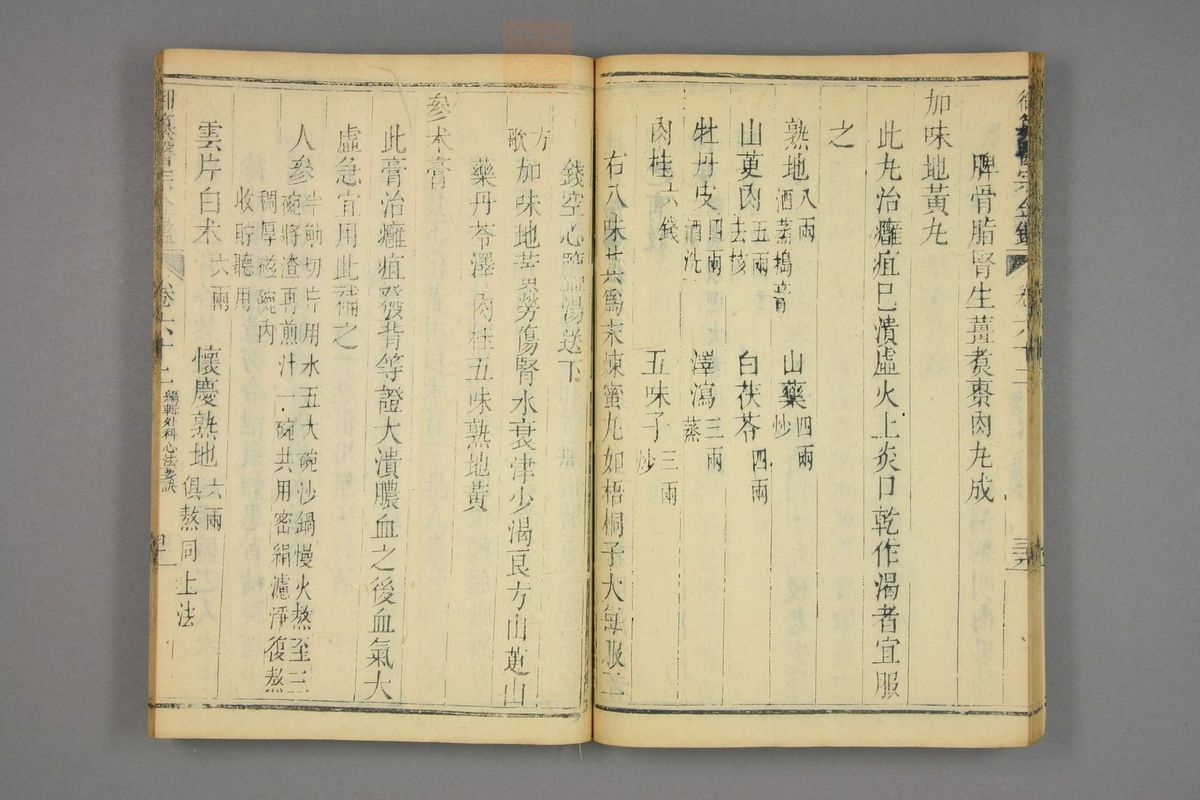 脾骨脂腎生薑煮棗肉丸成
加味地黃丸
此丸治癰疽已潰虛火上炎口乾作渴者宜服
之
熟地八兩酒蒸搗膏 山藥四兩炒
山萸肉五兩去核 白茯苓四兩
牡丹皮四兩酒洗 澤瀉三兩蒸
肉桂六錢 五味子三兩炒
右八味共爲末煉蜜丸如梧桐子大每服二
錢空心鹽湯送下
方歌 加味地黃勞傷腎水衰津少渴良方山萸山
藥丹苓澤肉桂五味熟地黃
參朮膏
此膏治癰疽發背等證大潰膿血之後血氣大
虛急宜用此補之
人參半觔切片用水五大碗沙鍋慢火熬至三
碗將渣再煎汁一碗共用密絹濾淨復熬
稠厚磁碗內
收貯聽用
雲片白朮六兩 懷慶熟地六兩俱熬同上法
卷六十二 編輯外科心法要訣